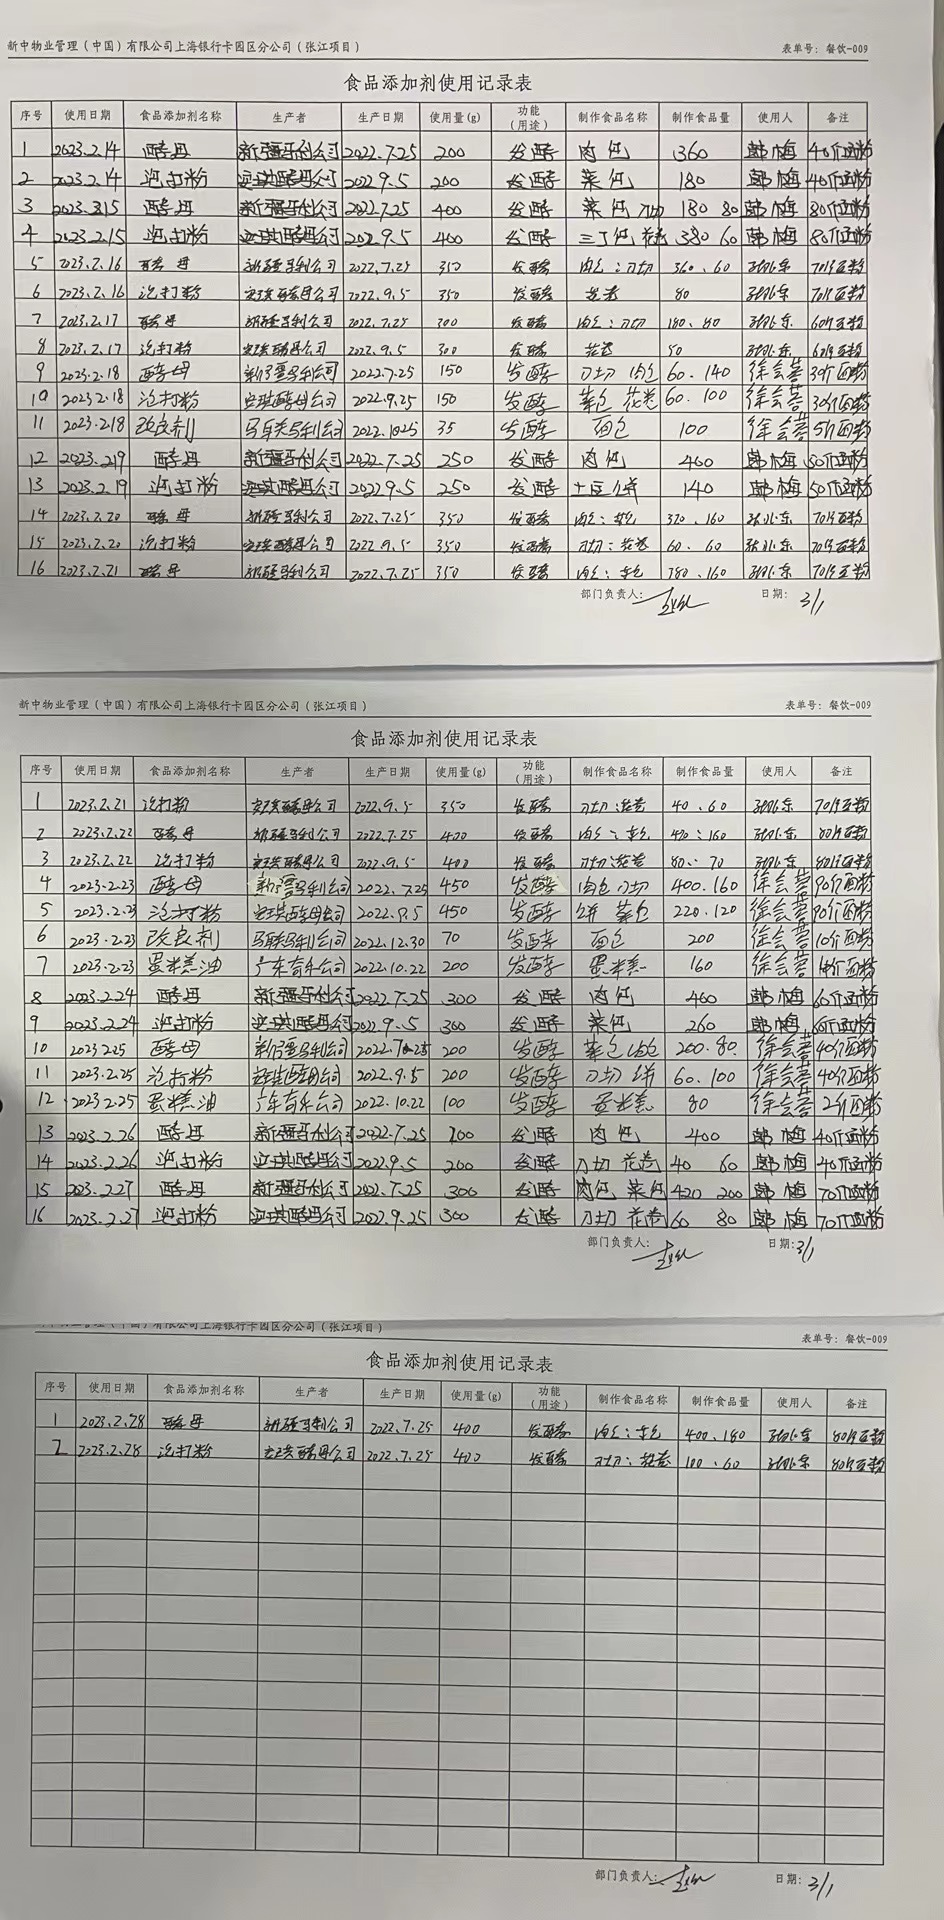 新中物业管理（中国）有限公司上海银行卡园区分公司（张江项目） 表单号：餐饮-009
食品添加剂使用记录表
序号 使用日期 食品添加剂名称 生产者 生产日期 使用量(g) 功能（用途） 制作食品名称 制作食品量 使用人 备注
1 2023.2.14 酵母 新疆马利公司 2022.7.25 200 发酵 肉包 360 韩梅 40斤面粉
2 2023.2.14 泡打粉 安琪酵母公司 2022.9.5 200 发酵 菜包 180 韩梅 40斤面粉
3 2023.2.15 酵母 新疆马利公司 2022.7.25 400 发酵 菜包 刀切 180 80 韩梅 80斤面粉
4 2023.2.15 泡打粉 安琪酵母公司 202.9.5 400 发酵 三丁包 花卷 380 60 韩梅 80斤面粉
5 2023.2.16 酵母 新疆马利公司 2022.7.25 350 发酵 肉包:刀切 360.60 70斤面粉
6 2023.2.16 泡打粉 安琪酵母公司 2022.9.5 350 发酵 花卷 80 70斤面粉
7 2023.2.17 酵母 新疆马利公司 2022.7.25 300 发酵 肉包:刀切 180.80 60斤面粉
8 2023.2.17 泡打粉 安琪酵母公司 2022.9.5 300 发酵 花卷 50 60斤面粉
9 2023.2.18 酵母 新疆马利公司 2022.7.25 150 发酵 刀切 肉包 60.140 徐会菩 30斤面粉
10 2023.2.18 泡打粉 安琪酵母公司 2022.9.25 150 发酵 菜包 花卷 60.100 徐会菩 30斤面粉
11 2023.2.18 改良剂 马联马利公司 2022.10.25 35 发酵 面包 100 徐会菩 5斤面粉
12 2023.2.19 酵母 新疆马利公司 2022.7.25 250 发酵 肉包 460 韩梅 50斤面粉
13 2023.2.19 泡打粉 安琪酵母公司 2022.9.5 250 发酵 土豆饼 140 韩梅 50斤面粉
14 2023.2.20 酵母 新疆马利公司 2022.7.25 350 发酵 肉包:菜包 320.160 70斤面粉
15 2023.2.20 泡打粉 安琪酵母公司 2022.9.5 350 发酵 刀切:花卷 60.60 70斤面粉
16 2023.2.21 酵母 新疆马利公司 2022.7.25 350 发酵 肉包:菜包 380.160 70斤面粉
部门负责人: 日期: 3/1
新中物业管理（中国）有限公司上海银行卡园区分公司（张江项目） 表单号：餐饮-009
食品添加剂使用记录表
序号 使用日期 食品添加剂名称 生产者 生产日期 使用量(g) 功能（用途） 制作食品名称 制作食品量 使用人 备注
1 2023.2.21 泡打粉 安琪酵母公司 2022.9.5 350 发酵 刀切:花卷 40.60 70斤面粉
2 2023.2.22 酵母 新疆马利公司 2022.7.25 400 发酵 肉包:菜包 470:160 80斤面粉
3 2023.2.22 泡打粉 安琪酵母公司 2022.9.5 400 发酵 刀切:花卷 80.70 80斤面粉
4 2023.2.23 酵母 新疆马利公司 2022.7.25 450 发酵 肉包 刀切 400.160 徐会菩 90斤面粉
5 2023.2.23 泡打粉 安琪酵母公司 2022.9.5 450 发酵 饼 菜包 220.120 徐会菩 90斤面粉
6 2023.2.23 改良剂 马联马利公司 2022.12.30 70 发酵 面包 200 徐会菩 10斤面粉
7 2023.2.23 蛋糕油 广东奇华公司 2022.10.22 200 发酵 蛋糕 160 徐会菩 4斤面粉
8 2023.2.24 酵母 新疆马利公司 2022.7.25 300 发酵 肉包 460 韩梅 60斤面粉
9 2023.2.24 泡打粉 安琪酵母公司 2022.9.5 300 发酵 菜包 260 韩梅 60斤面粉
10 2023.2.25 酵母 新疆马利公司 2022.7.25 200 发酵 菜包 肉包 200.80 徐会菩 40斤面粉
11 2023.2.25 泡打粉 安琪酵母公司 2022.9.5 200 发酵 刀切 饼 60.100 徐会菩 40斤面粉
12 2023.2.25 蛋糕油 广东奇华公司 2022.10.22 100 发酵 蛋糕 80 徐会菩 2斤面粉
13 2023.2.26 酵母 新疆马利公司 2022.7.25 200 发酵 肉包 400 韩梅 40斤面粉
14 2023.2.26 泡打粉 安琪酵母公司 2022.9.5 200 发酵 刀切 花卷 40 60 韩梅 40斤面粉
15 2023.2.27 酵母 新疆马利公司 2022.7.25 300 发酵 肉包 菜包 420 200 韩梅 70斤面粉
16 2023.2.27 泡打粉 安琪酵母公司 2022.9.25 300 发酵 刀切 花卷 60 80 韩梅 70斤面粉
部门负责人: 日期: 3/1
有限公司上海银行卡园区分公司（张江项目） 表单号：餐饮-009
食品添加剂使用记录表
序号 使用日期 食品添加剂名称 生产者 生产日期 使用量(g) 功能（用途） 制作食品名称 制作食品量 使用人 备注
1 2023.2.28 酵母 新疆马利公司 2022.7.25 400 发酵 肉包:菜包 400.180 80斤面粉
2 2023.2.28 泡打粉 安琪酵母公司 2022.7.25 400 发酵 刀切:花卷 100.60 80斤面粉
部门负责人: 日期: 3/1